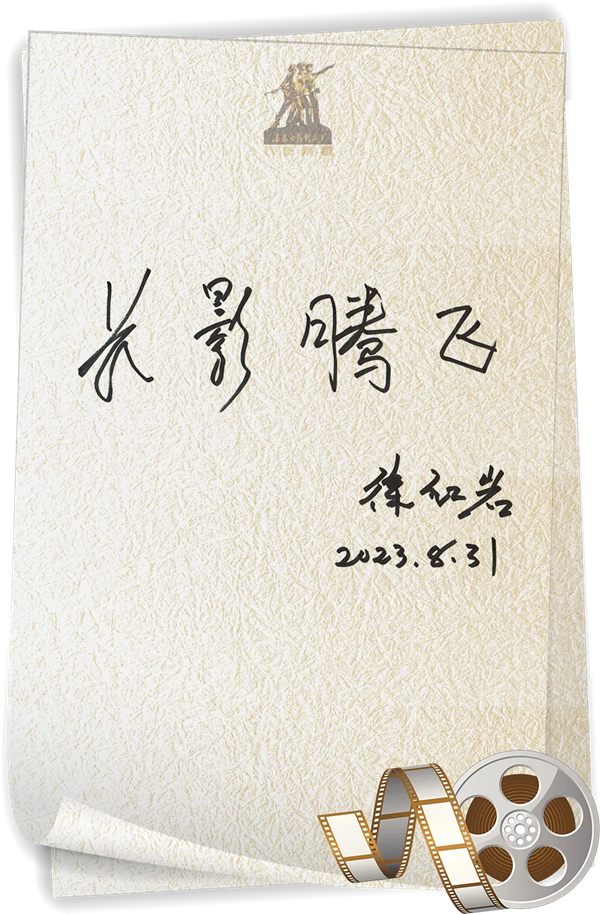 长影腾飞
徐红岩
2023.8.31